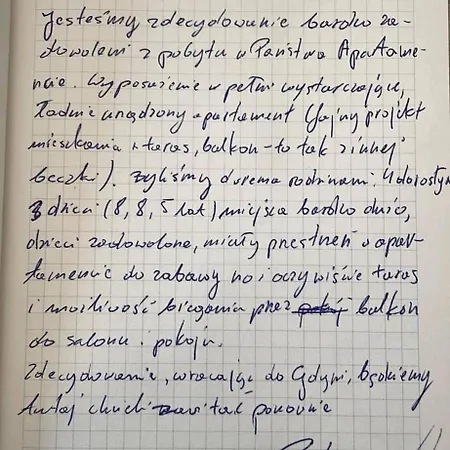 Jesteśmy zdecydowanie bardzo za-
dowoleni z pobytu w Państwa Apartame-
ncie. Wyposażenie w pełni wystarczające,
ładnie urządzony apartament (fajny projekt
mieszkania + taras, balkon - to tak z innej
beczki). Byliśmy dwema rodzinami: 4 dorosłych
3 dzieci (8, 8, 5 lat) miejsca bardzo dużo,
dzieci zadowolone, miały przestrzeń w apar-
tamencie do zabawy no i oczywiście taras
i możliwość biegania przez balkon
do salonu i pokoju.
Zdecydowanie, wracając do Gdyni, będziemy
tutaj chcieli zawitać ponownie